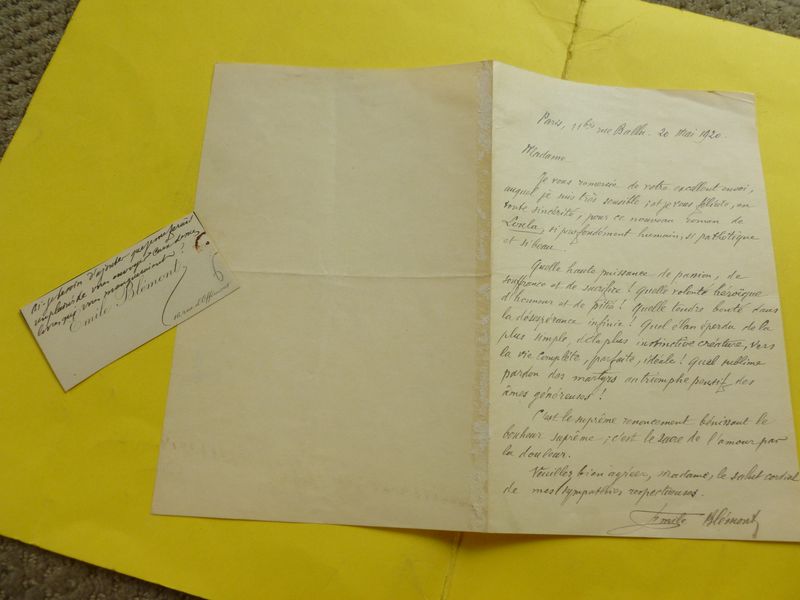 Paris, 11bis rue Ballu. 20 Mai 1920.
Madame
Je vous remercie de votre excellent envoi,
auquel je suis très sensible ; et je vous félicite, en
toute sincérité, pour ce nouveau roman de
si profondément humain, si pathétique
et si beau.
Quelle haute puissance de passion, de
souffrance et de sacrifice ! Quelle volonté héroïque
d'honneur et de pitié ! Quelle tendre bonté dans
la désespérance infinie ! Quel élan éperdu de la
plus simple, de la plus instinctive créature, vers
la vie complète, parfaite, idéale ! Quel sublime
pardon des martyrs au triomphe pensif des
âmes généreuses !
C'est le suprême renoncement bénissant le
bonheur suprême ; c'est le sacre de l'amour par
la douleur.
Veuillez bien agréer, madame, le salut cordial
de mes sympathies respectueuses.
Emile Blémont
Ai-je besoin d'ajouter que je me ferai
un plaisir de vous envoyer ceux de mes
livres qui vous manqueraient ?
Emile Blémont
16, rue d'Offémont